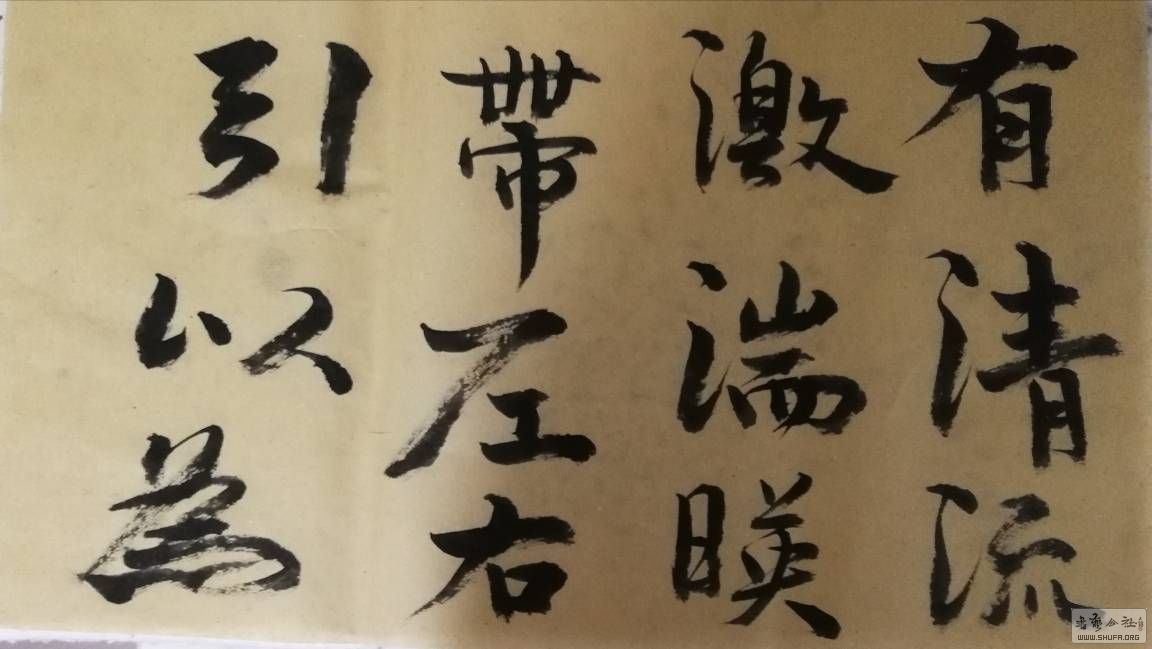 有清流
激湍暎
帶左右
引以為
WWW.SHUFA.ORG